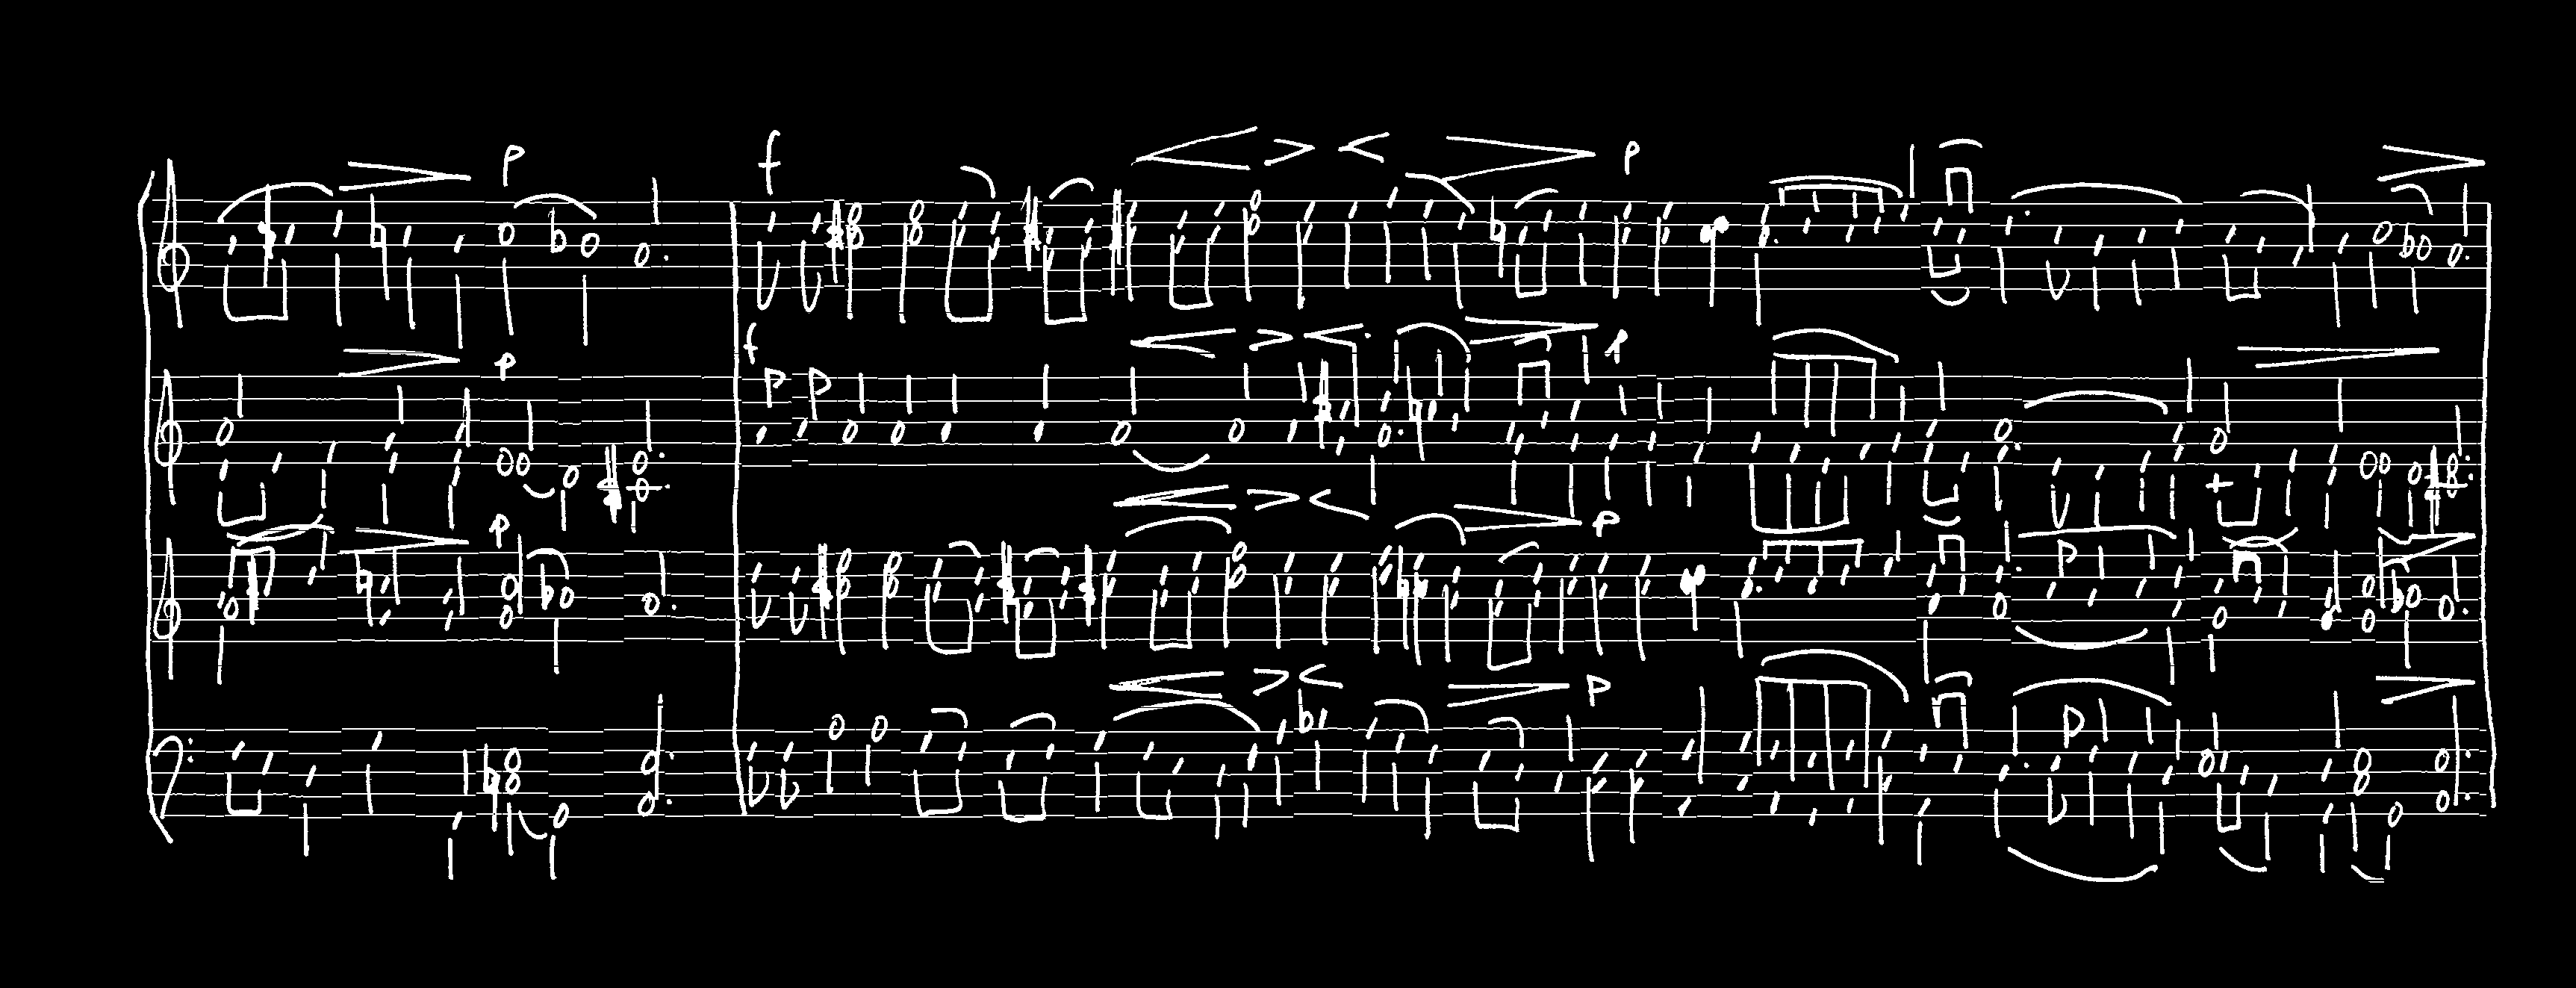 p f p
p f p
p p
p